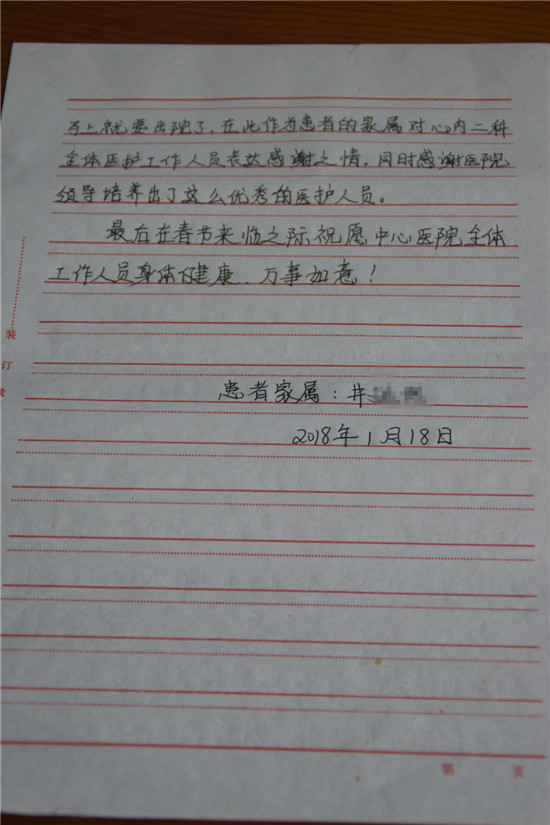 马上就要出院了，在此作为患者的家属对心内二科
全体医护工作人员表达感谢之情，同时感谢医院
领导培养出了这么优秀的医护人员。
最后在春节来临之际祝愿中心医院全体
工作人员身体健康、万事如意！
装
订
患者家属：井
2018年1月18日
第 页